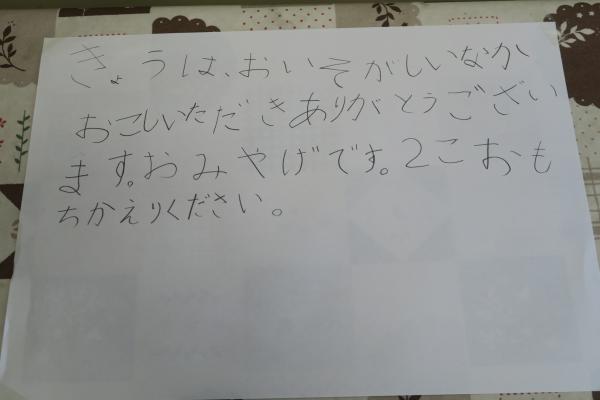 きょうは、おいそがしいなか
おこしいただきありがとうござい
ます。おみやげです。2こおも
ちかえりください。